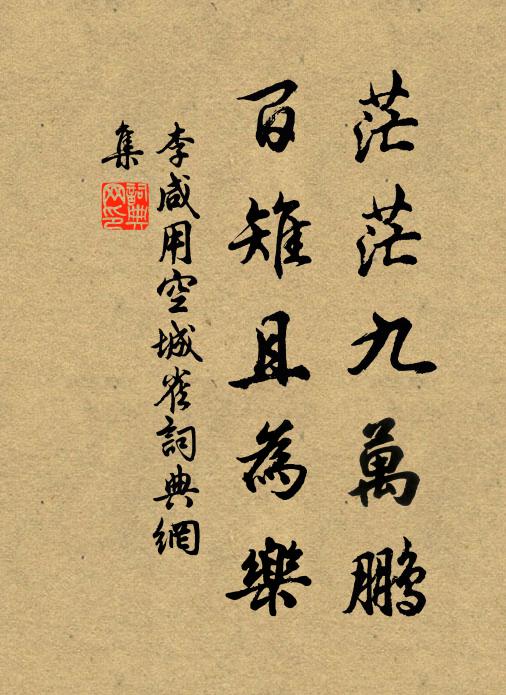 茫茫九萬鵬
百雉且為樂
李咸用空城雀詞典網
集
詞典
网印